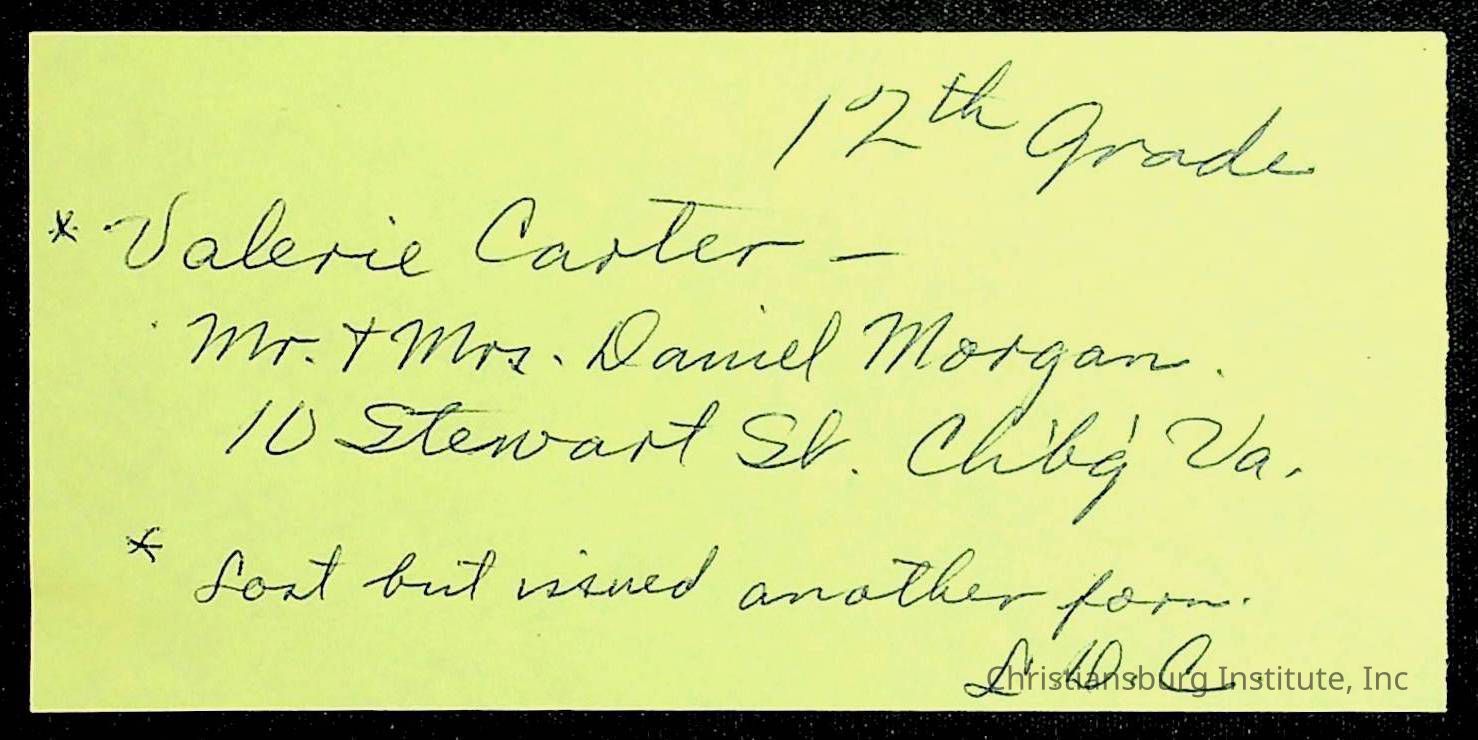 12th Grade
* Valerie Carter -
Mr. + Mrs. Daniel Morgan.
10 Stewart St. Ch'b'g Va.
* Lost but issued another form.
L. D. C.
Christiansburg Institute, Inc